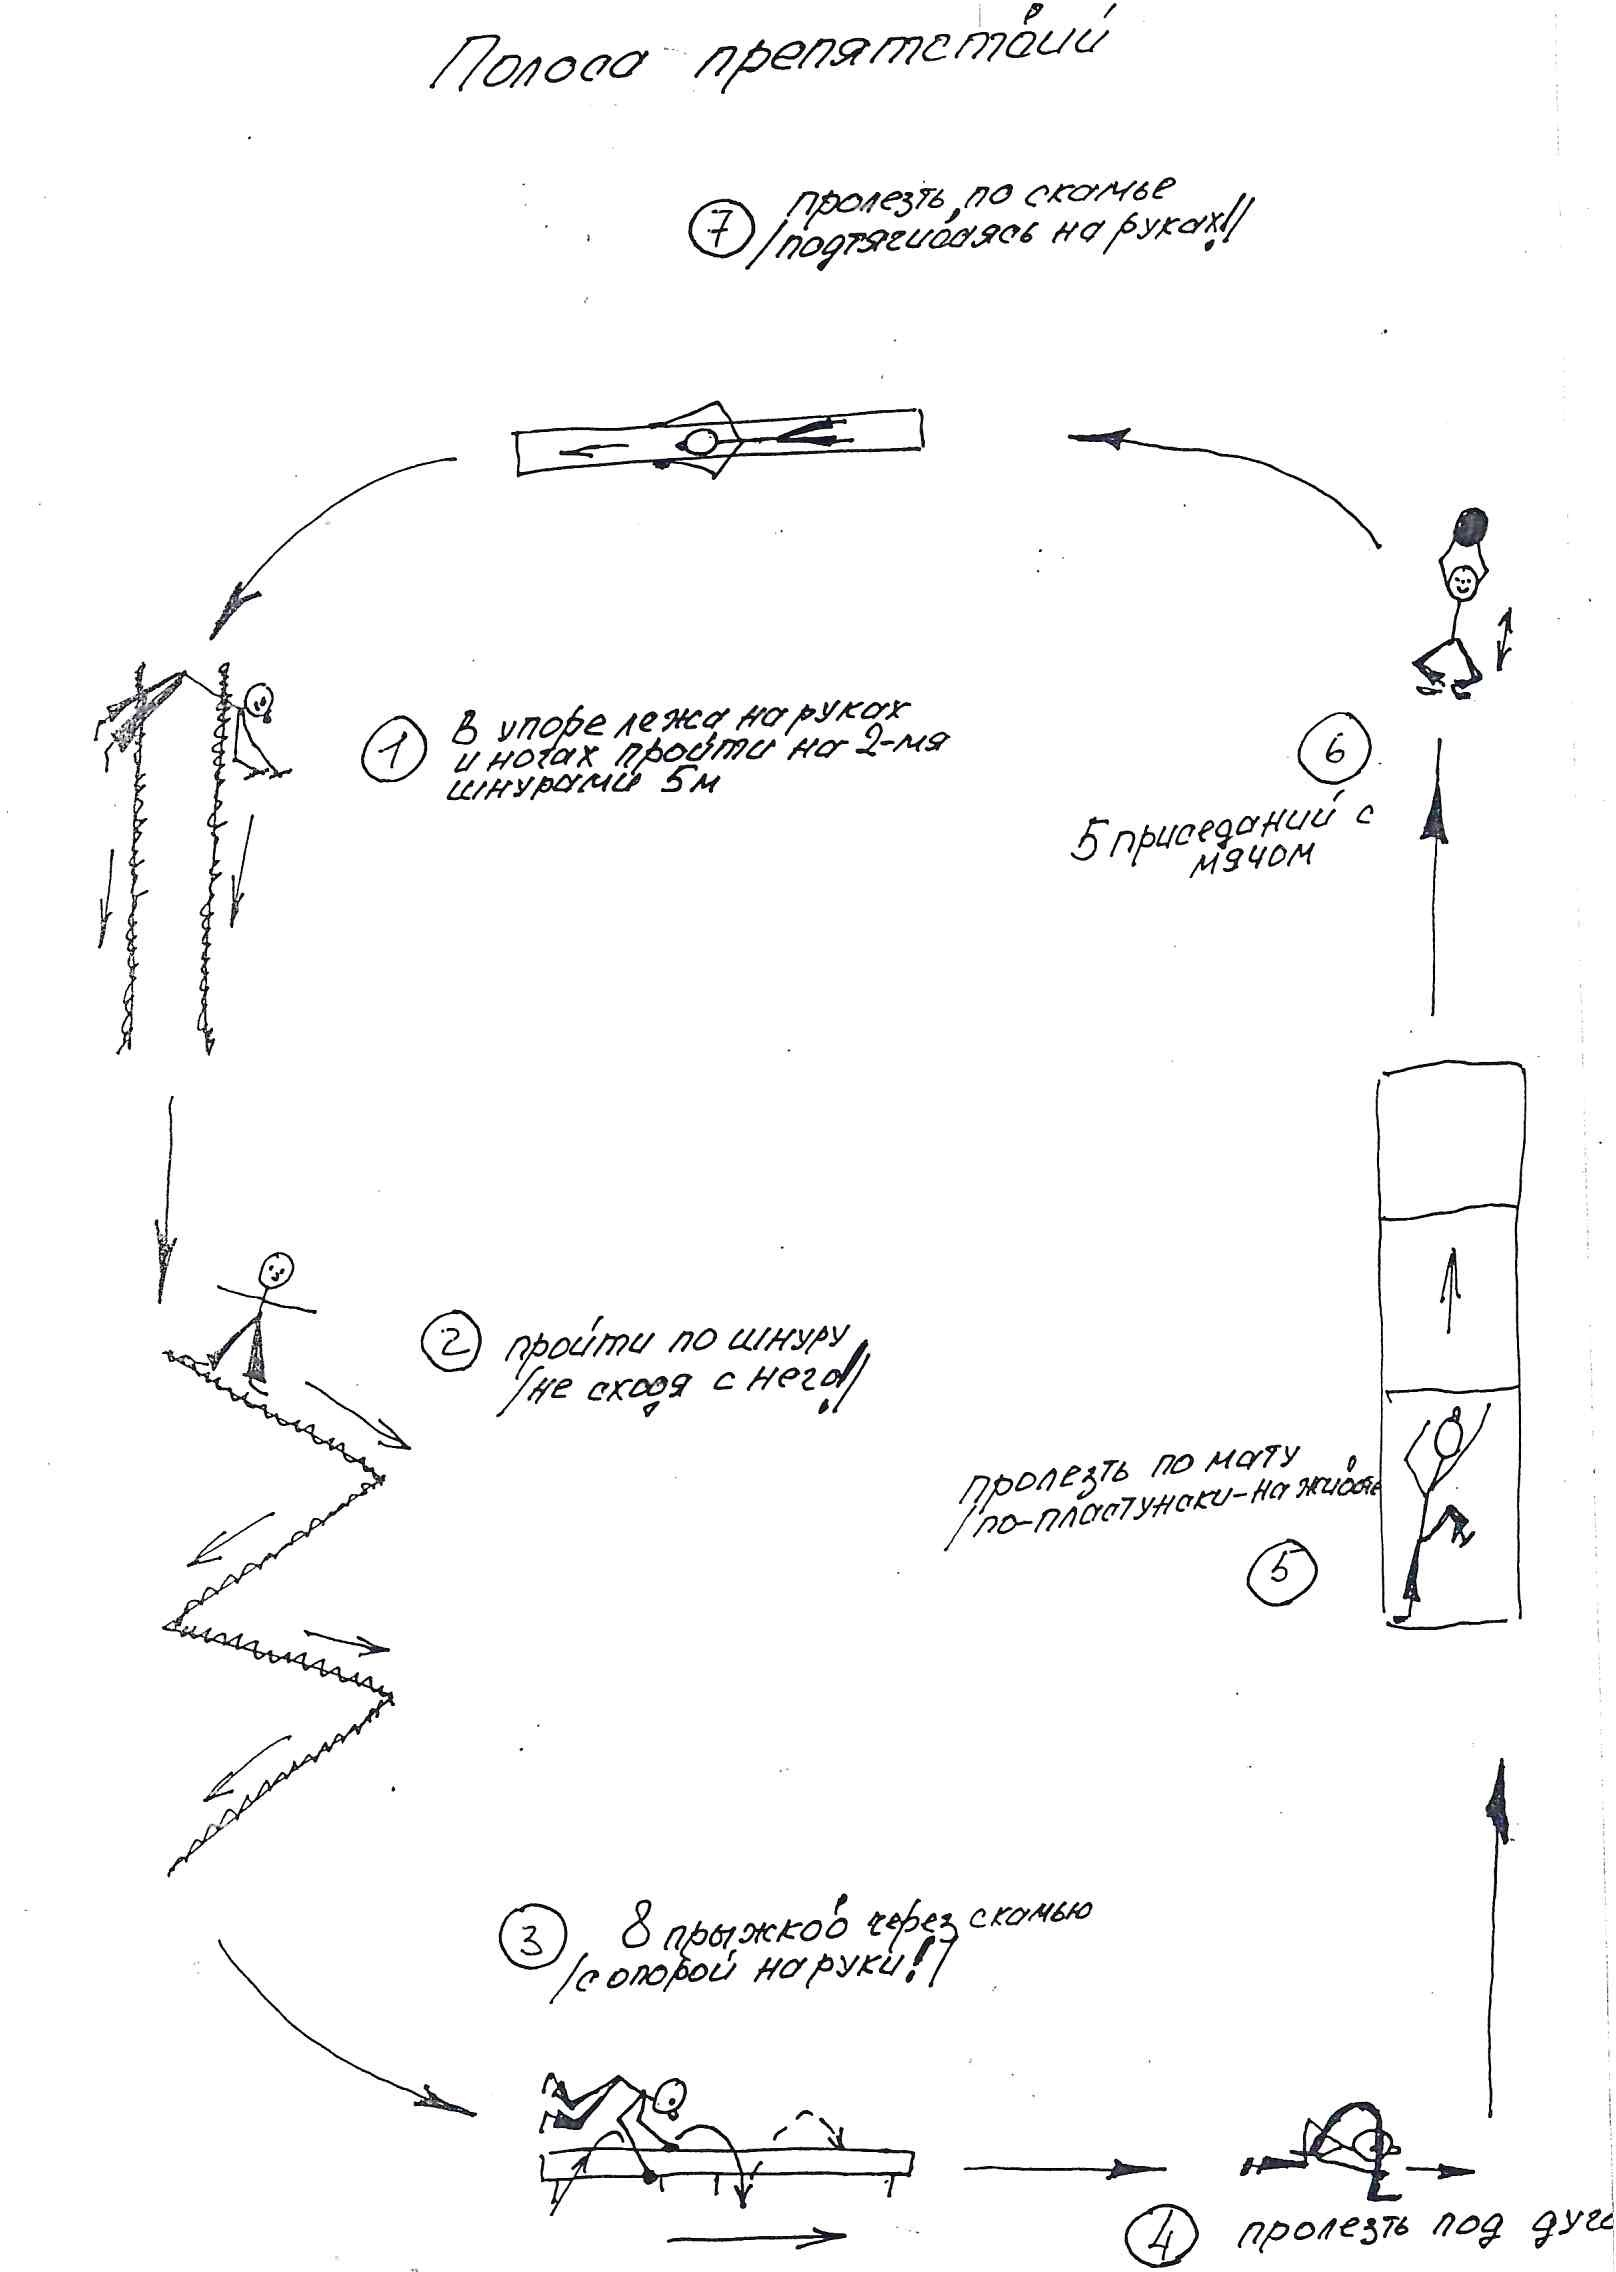 Полоса препятствий
7 пролезть, по скамье
/подтягиваясь на руках!/
1 В упоре лежа на руках
и ногах пройти на 2-мя
шнурами 5м
6
5 приседаний с
мячом
2 пройти по шнуру
/не сходя с него!/
пролезть по мату
/по-пластунски-на животе
5
3 8 прыжков через скамью
/с опорой на руки!/
4 пролезть под